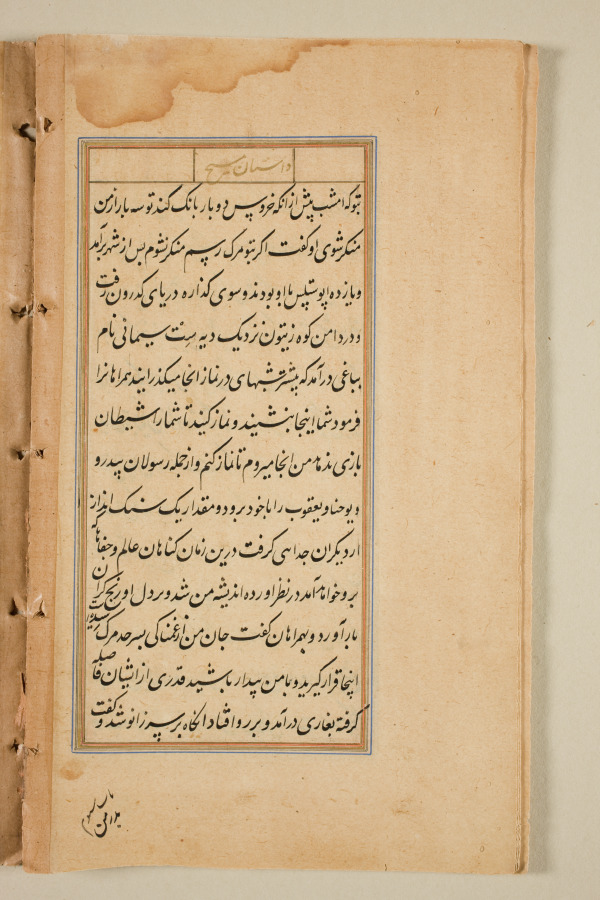 داستان مسیح
بتو که امشب پیش از انکه خروس دو بار بانک کند تو سه بار از من
منکر شوی او کفت اکر بتو مرک رسم منکر نشوم پس از شهر برآمد
و یازده اپوستلس با او بودند و سوی کذاره دریای کدرون رفت
و در دامن کوه زیتون نزدیک دیه ست سیمانی نام
بباغی درآمد که بیشتر شبهای در نماز انجا میکذرانید همراهانرا
فرمود شما اینجا بنشینید و نماز کنید تا شما را شیطان
بازی ندهد من انجا میروم تا نماز کنم و از جمله رسولان پیدرو
و یوحنا و یعقوب را با خود برد و مقدار یک سنک انداز
از دیکران جدایی کرفت درین زمان کناهان عالم و جفاها که
برو خواهد آمد در نظر آورده اندیشه من شد و بر دل او رنج کران
بار آورد و بهمراهان کفت جان من از غمناکی بسرحد مرک رسیده
اینجا قرار کیرید و با من بیدار باشید قدری از ایشان فاصله
کرفته بغاری درآمد و بر رو افتاد انکاه بر سر زانو شد و کفت